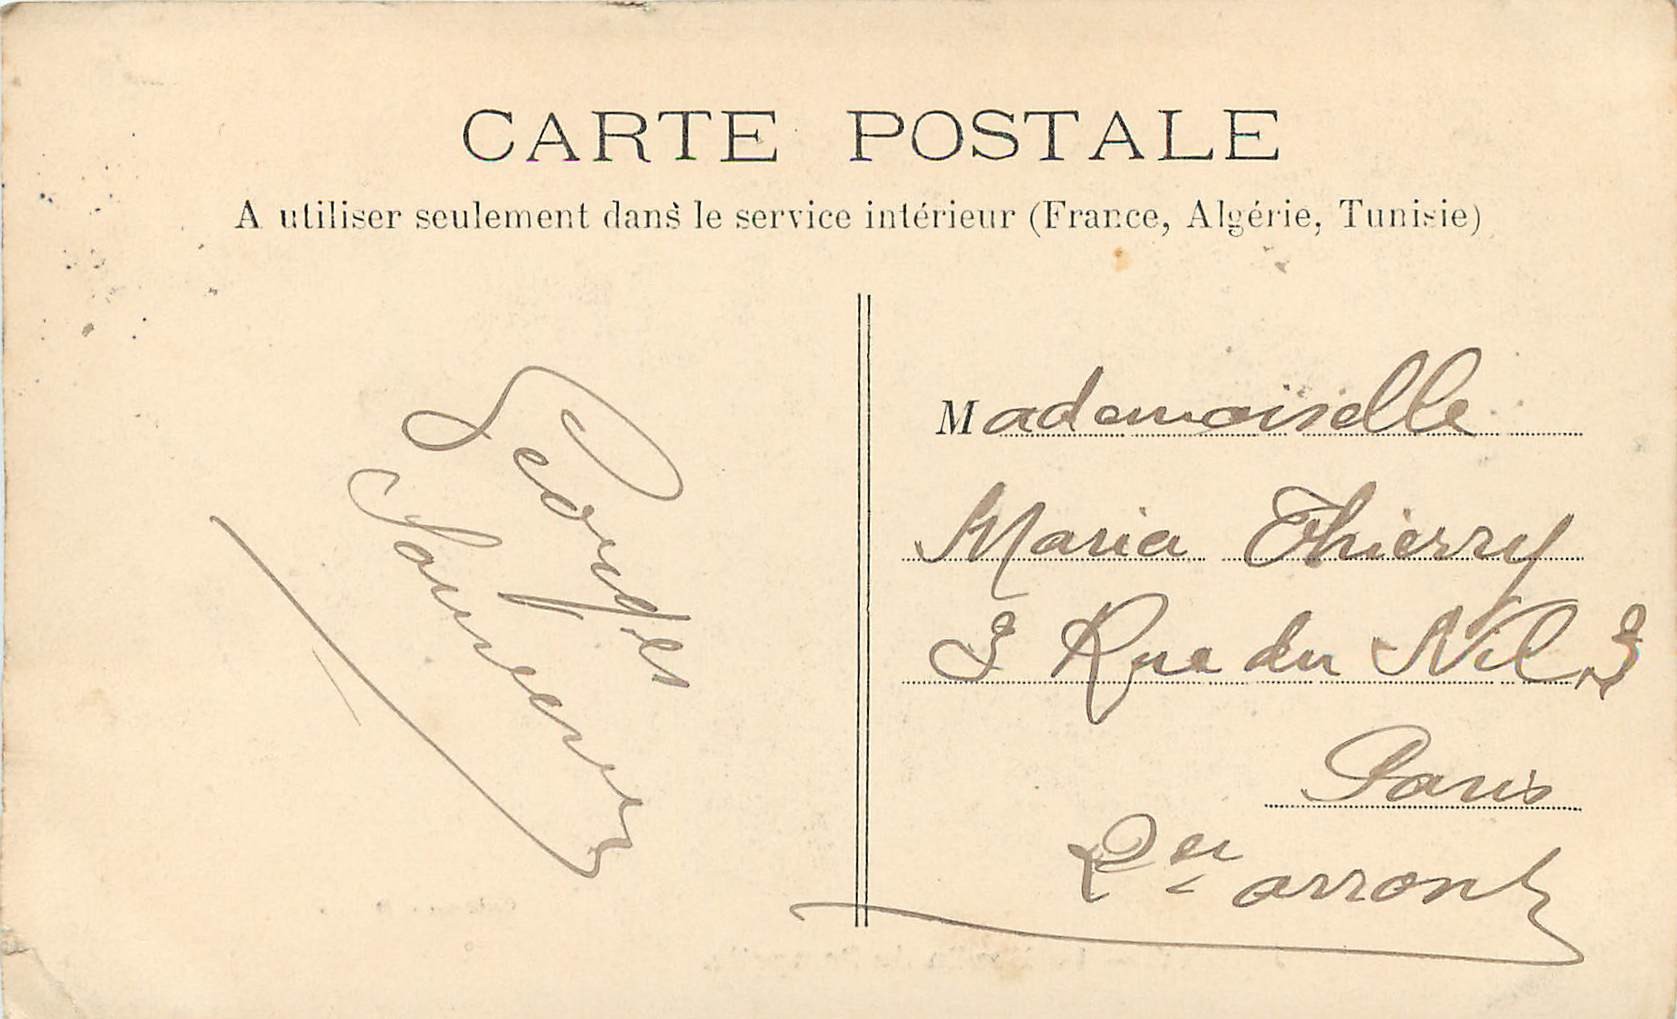 CARTE POSTALE
A utiliser seulement dans le service intérieur (France, Algérie, Tunisie)
Georges
Mademoiselle
Maria Thierry
3 Rue du Nil, 3
Paris
arron